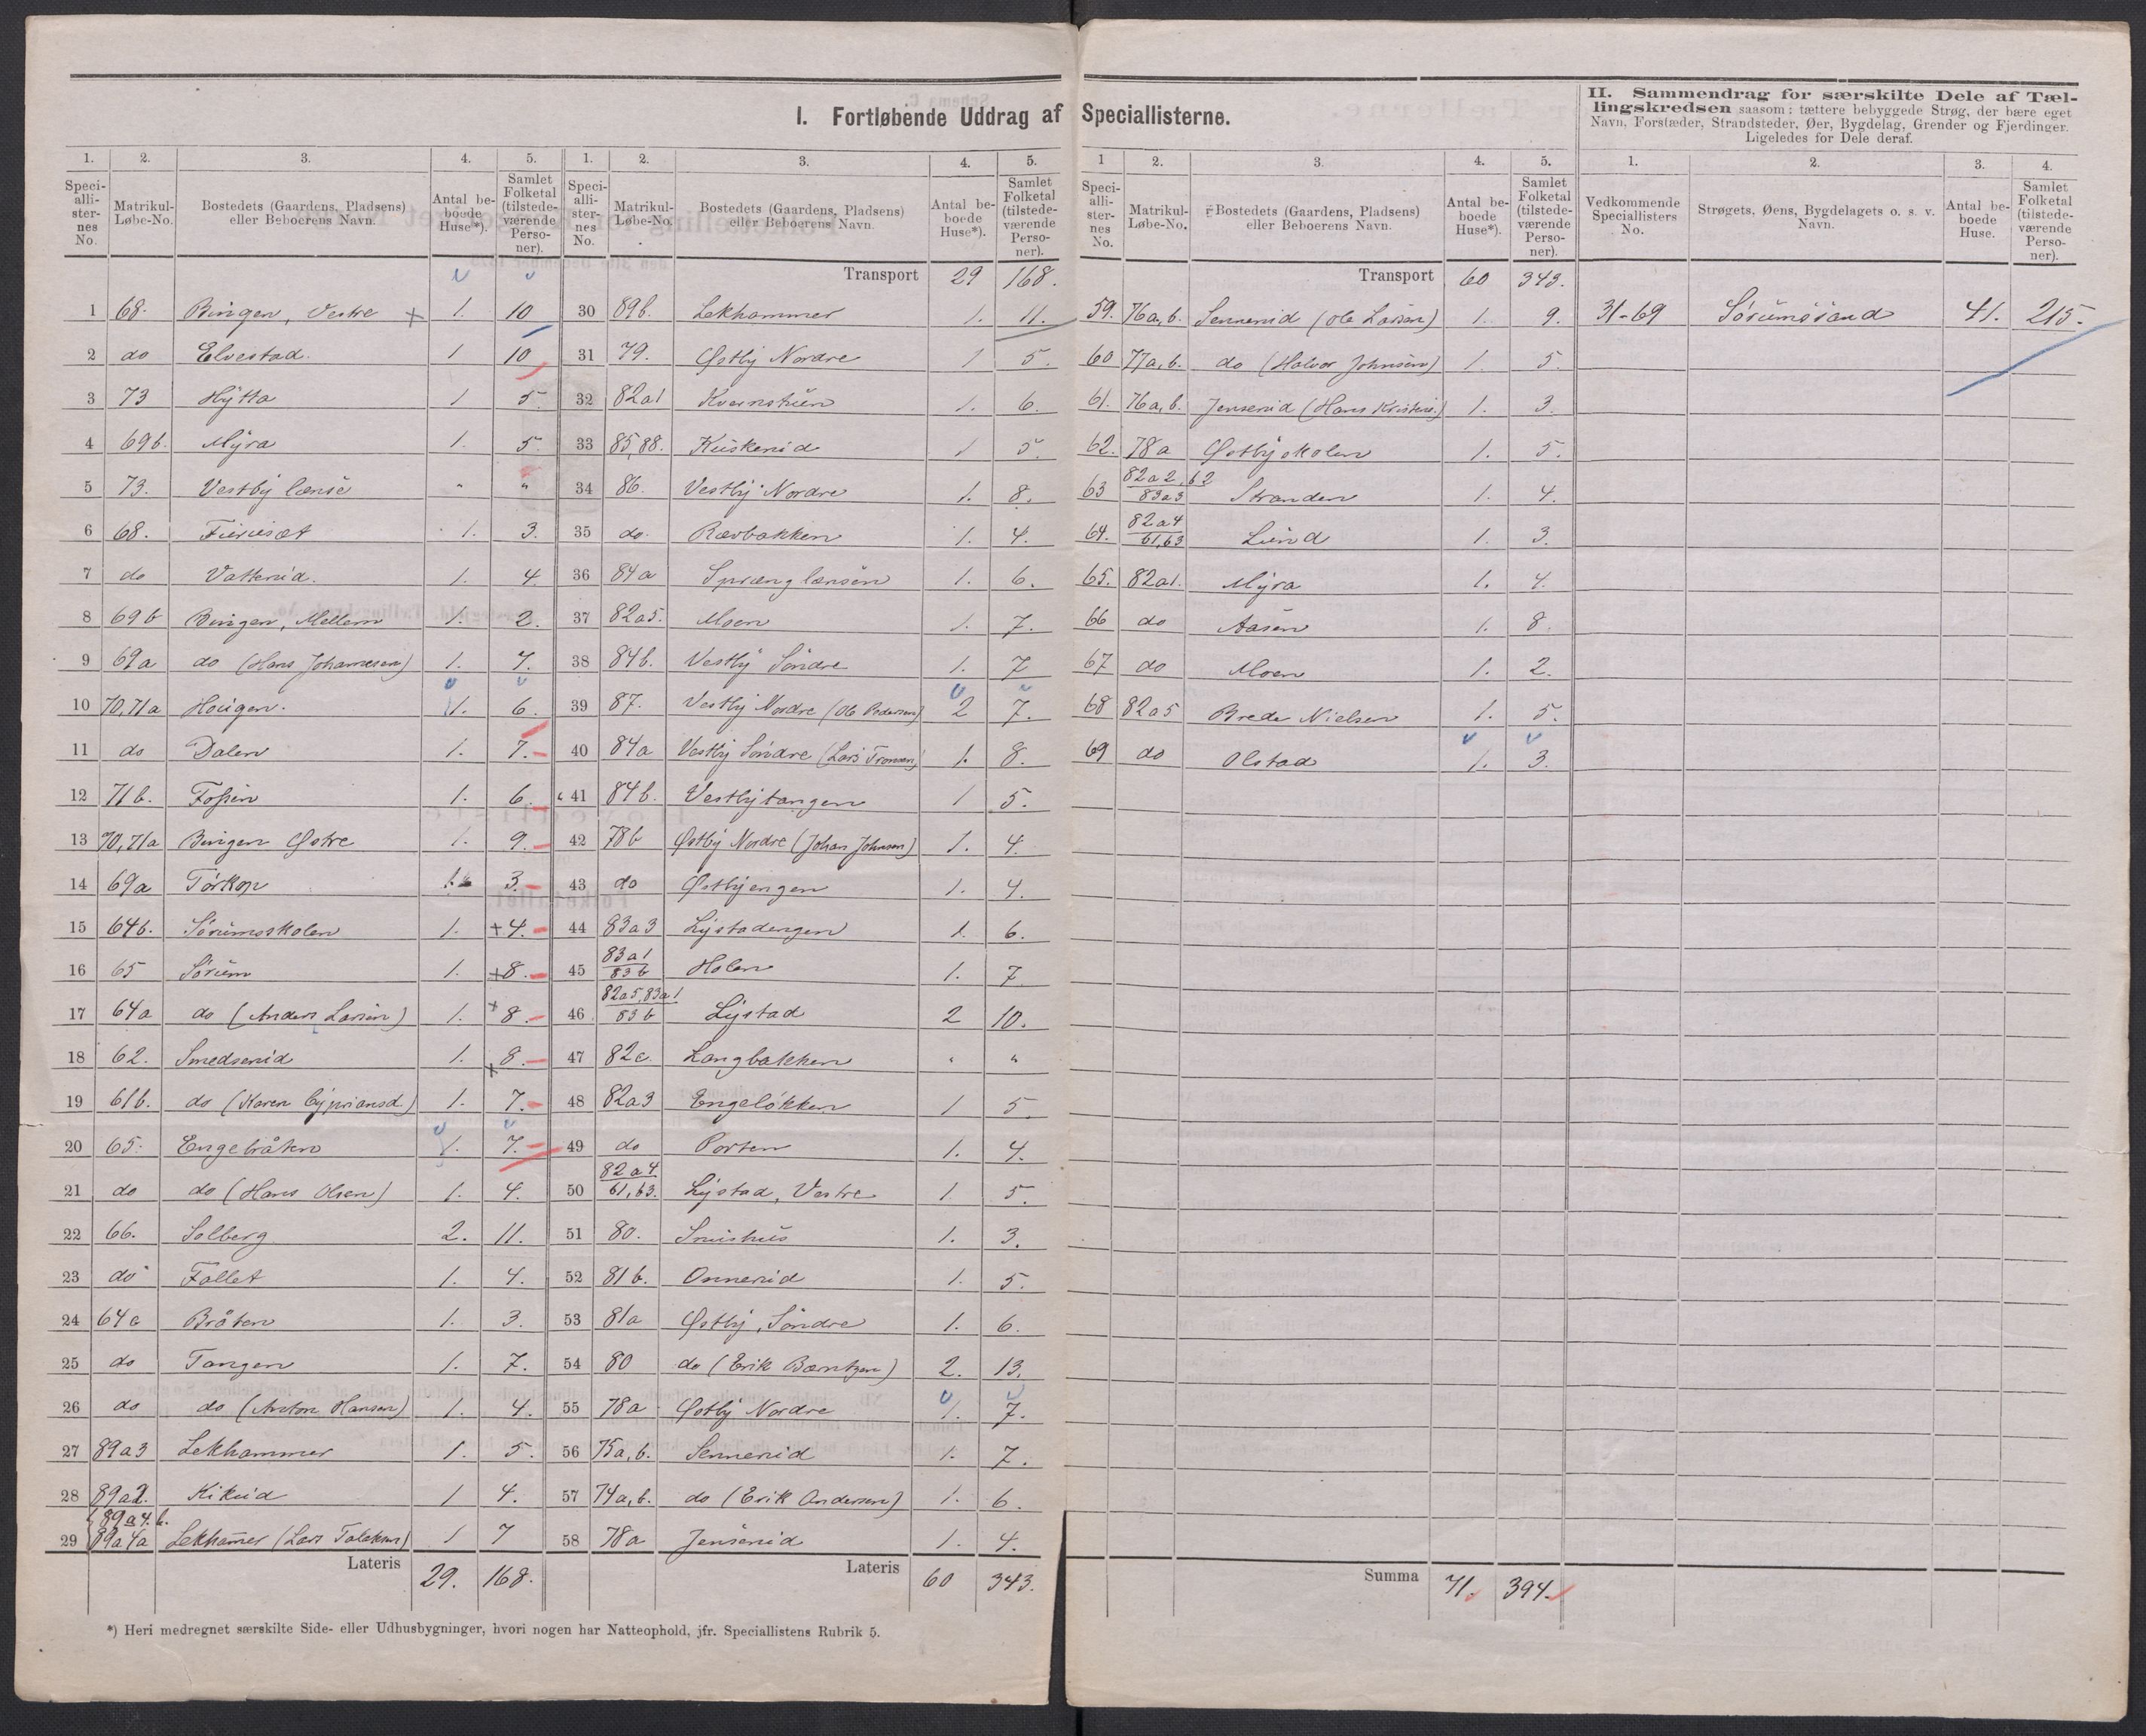 I. Fortløbende Uddrag af Speciallisterne.
II. Sammendrag for særskilte Dele af Tællingskredsen saasom: tættere bebyggede Strøg, der bære eget
Navn, Forstæder, Strandsteder, Øer, Bygdelag, Grender og Fjerdinger.
Ligeledes for Dele deraf.
1. 2. 3. 4. 5.
Speciallisternes No. Matrikul-Løbe-No. Bostedets (Gaardens, Pladsens) eller Beboerens Navn. Antal beboede Huse*). Samlet Folketal (tilstedeværende Personer).
1 68. Bingen, Vestre 1. 10
2 do Elvestad. 1 10
3 73 Hytta 1 5
4 69b. Myra 1. 5
5 73. Vestby lænse " "
6 68. Furuset 1. 3.
7 do Vattenud. 1. 4.
8 69b Bingen, Mellem 1. 2.
9 69a do (Hans Johannesen) 1. 7.
10 70,71a Hougen. 1. 6.
11 do Dalen 1. 7.
12 71b. Fossen 1. 6.
13 70,71a Bingen Østre 1. 9.
14 69a Torkop 1. 3.
15 64b. Sørumsskolen 1. 4.
16 65 Sørum 1. 8.
17 64a do (Anders Larsen) 1. 8.
18 62. Smedsrud 1. 8.
19 61b. do (Karen Cypriansd.) 1. 7.
20 65. Engebråten 1. 7.
21 do do (Hans Olsen) 1. 4.
22 66. Solberg 2. 11.
23 do Fallet 1. 4.
24 64a Bråten 1. 3.
25 do Tangen 1. 7.
26 do do (Anton Hansen) 1. 4.
27 89a3 Lekhammer 1. 5.
28 89a2. Kikud 1 4.
29 89a4.b. 89a4a Lekhamer (Lars ) 1 7
Lateris 29. 168.
1. 2. 3. 4. 5.
Speciallisternes No. Matrikul-Løbe-No. Bostedets (Gaardens, Pladsens) eller Beboerens Navn. Antal beboede Huse*). Samlet Folketal (tilstedeværende Personer).
Transport 29 168.
30 89b. Lekhammer 1. 11.
31 79. Østby Nordre 1 5.
32 82a1 Kvernstuen 1. 6.
33 85,88. Kuskerud 1 5.
34 86. Vestby Nordre 1. 8.
35 do. Rævbakken 1. 4.
36 84a Sprænglænsen 1. 6.
37 82a5. Moen 1. 7.
38 84b. Vestby Søndre 1. 7
39 87. Vestby Nordre (Ole Pedersen) 2 7.
40 84a Vestby Søndre (Lars Tronsen) 1. 8.
41 84b. Vestbytangen 1 5.
42 78b Østby Nordre (Johan Johnsen) 1. 4.
43 do Østbyengen 1. 4.
44 83a3 Lystadengen 1. 6.
45 83a1 83b Holen 1. 7
46 82a5,83a1 83b Lystad 2 10.
47 82c. Langbakken " "
48 82a3 Engeløkken 1 5.
49 do Porten 1. 4.
50 82a4 61,63. Lystad, Vestre 1. 5.
51 80. Snushus 1. 3.
52 81b. Onnerud 1. 5.
53 81a Østby, Søndre 1. 6.
54 80 do (Erik Berntzen) 2. 13.
55 78a Østby Nordre 1. 7.
56 75a,b. Sennerud 1. 7.
57 74a,b. do (Erik Andersen) 1. 6.
58 78a Jenserud 1. 4.
Lateris 60 343.
1 2. 3. 4. 5.
Speciallisternes No. Matrikul-Løbe-No. Bostedets (Gaardens, Pladsens) eller Beboerens Navn. Antal beboede Huse*). Samlet Folketal (tilstedeværende Personer).
Transport 60 343.
59. 76a,b. Sennerud (Ole Larsen) 1. 9.
60 77a,b. do (Halvor Johnsen) 1. 5.
61. 76a,b. Jenserud (Hans Kristens.) 1. 3.
62. 78a Østbyskolen 1. 5.
63 82a2,62 83a3 Stranden 1. 4.
64. 82a4 61,63 Lund 1. 3.
65. 82a1. Myra 1. 4.
66 do Aasen 1. 8.
67 do Moen 1. 2.
68 82a5 Brede Nielsen 1. 5.
69 do Olstad 1. 3.
Summa 71. 394.
1. 2. 3. 4.
Vedkommende Speciallisters No. Strøgets, Øens, Bygdelagets o. s. v. Navn. Antal beboede Huse. Samlet Folketal (tilstedeværende Personer).
31-69 Sørumsand 41. 215.
*) Heri medregnet særskilte Side- eller Udhusbygninger, hvori nogen har Natteophold, jfr. Speciallistens Rubrik 5.